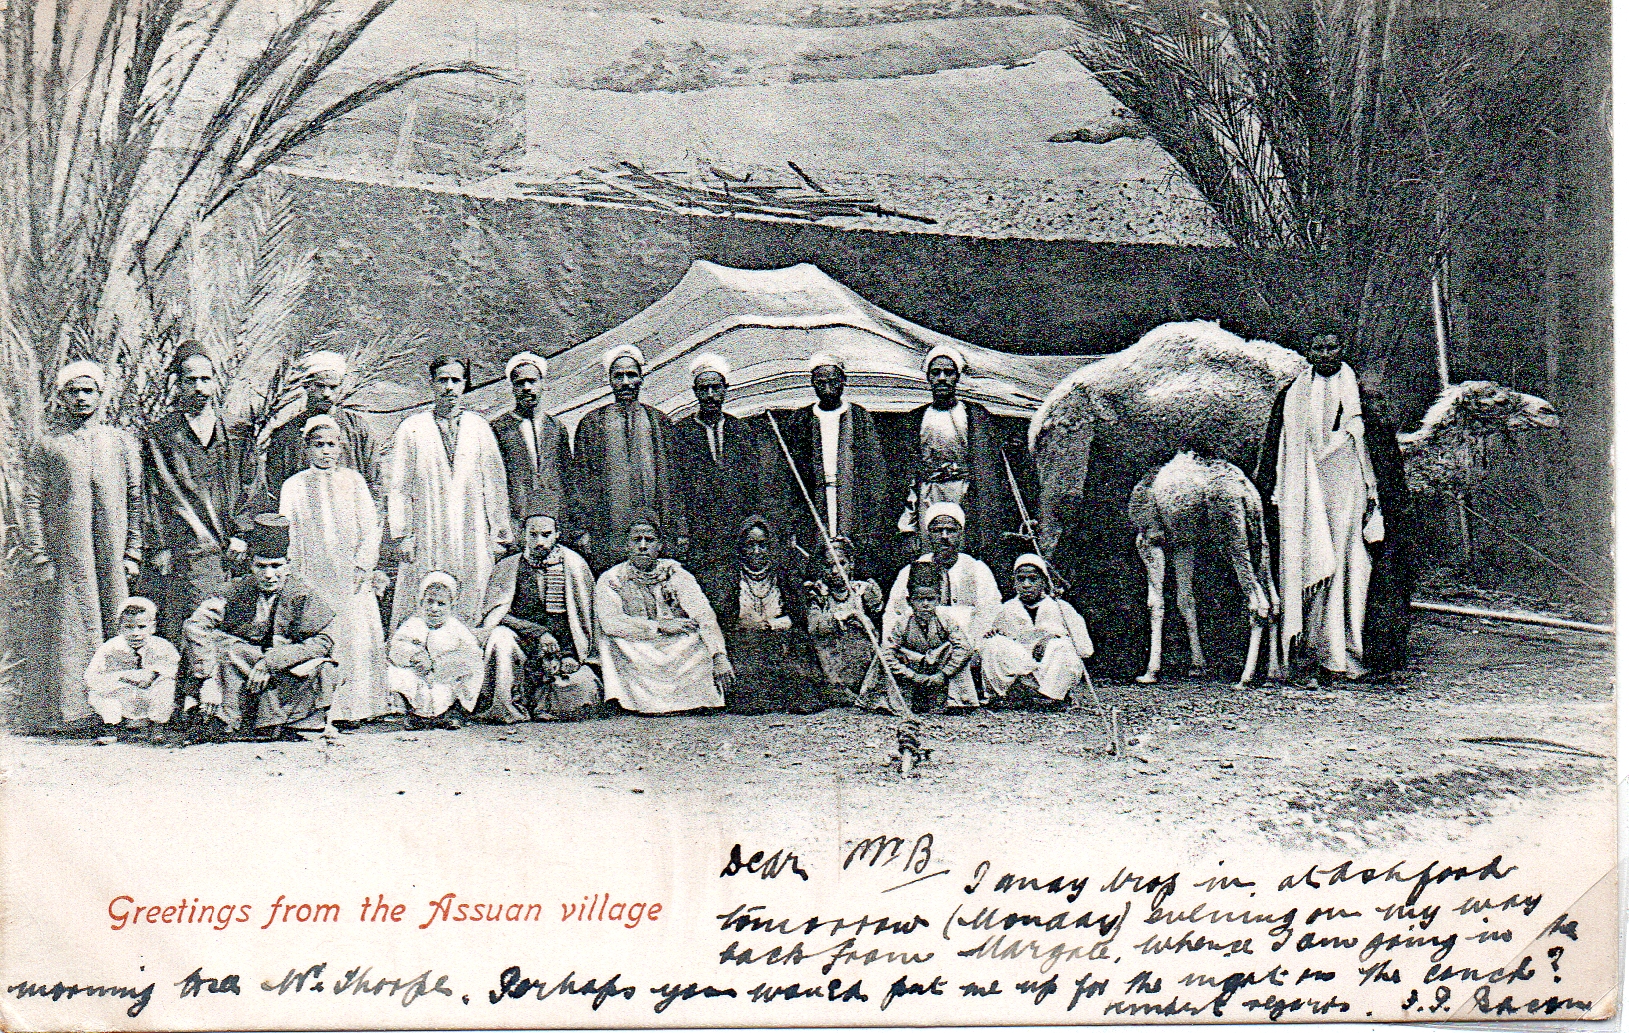 Greetings from the Assuan village
Dear Mr B
I may drop in at Ashford
tomorrow (Monday) evening on my way
back from Margate, where I am going in the
morning to see Mr Thorpe. Perhaps you would put me up for the night on the couch?
kindest regards. J.P. Bacon